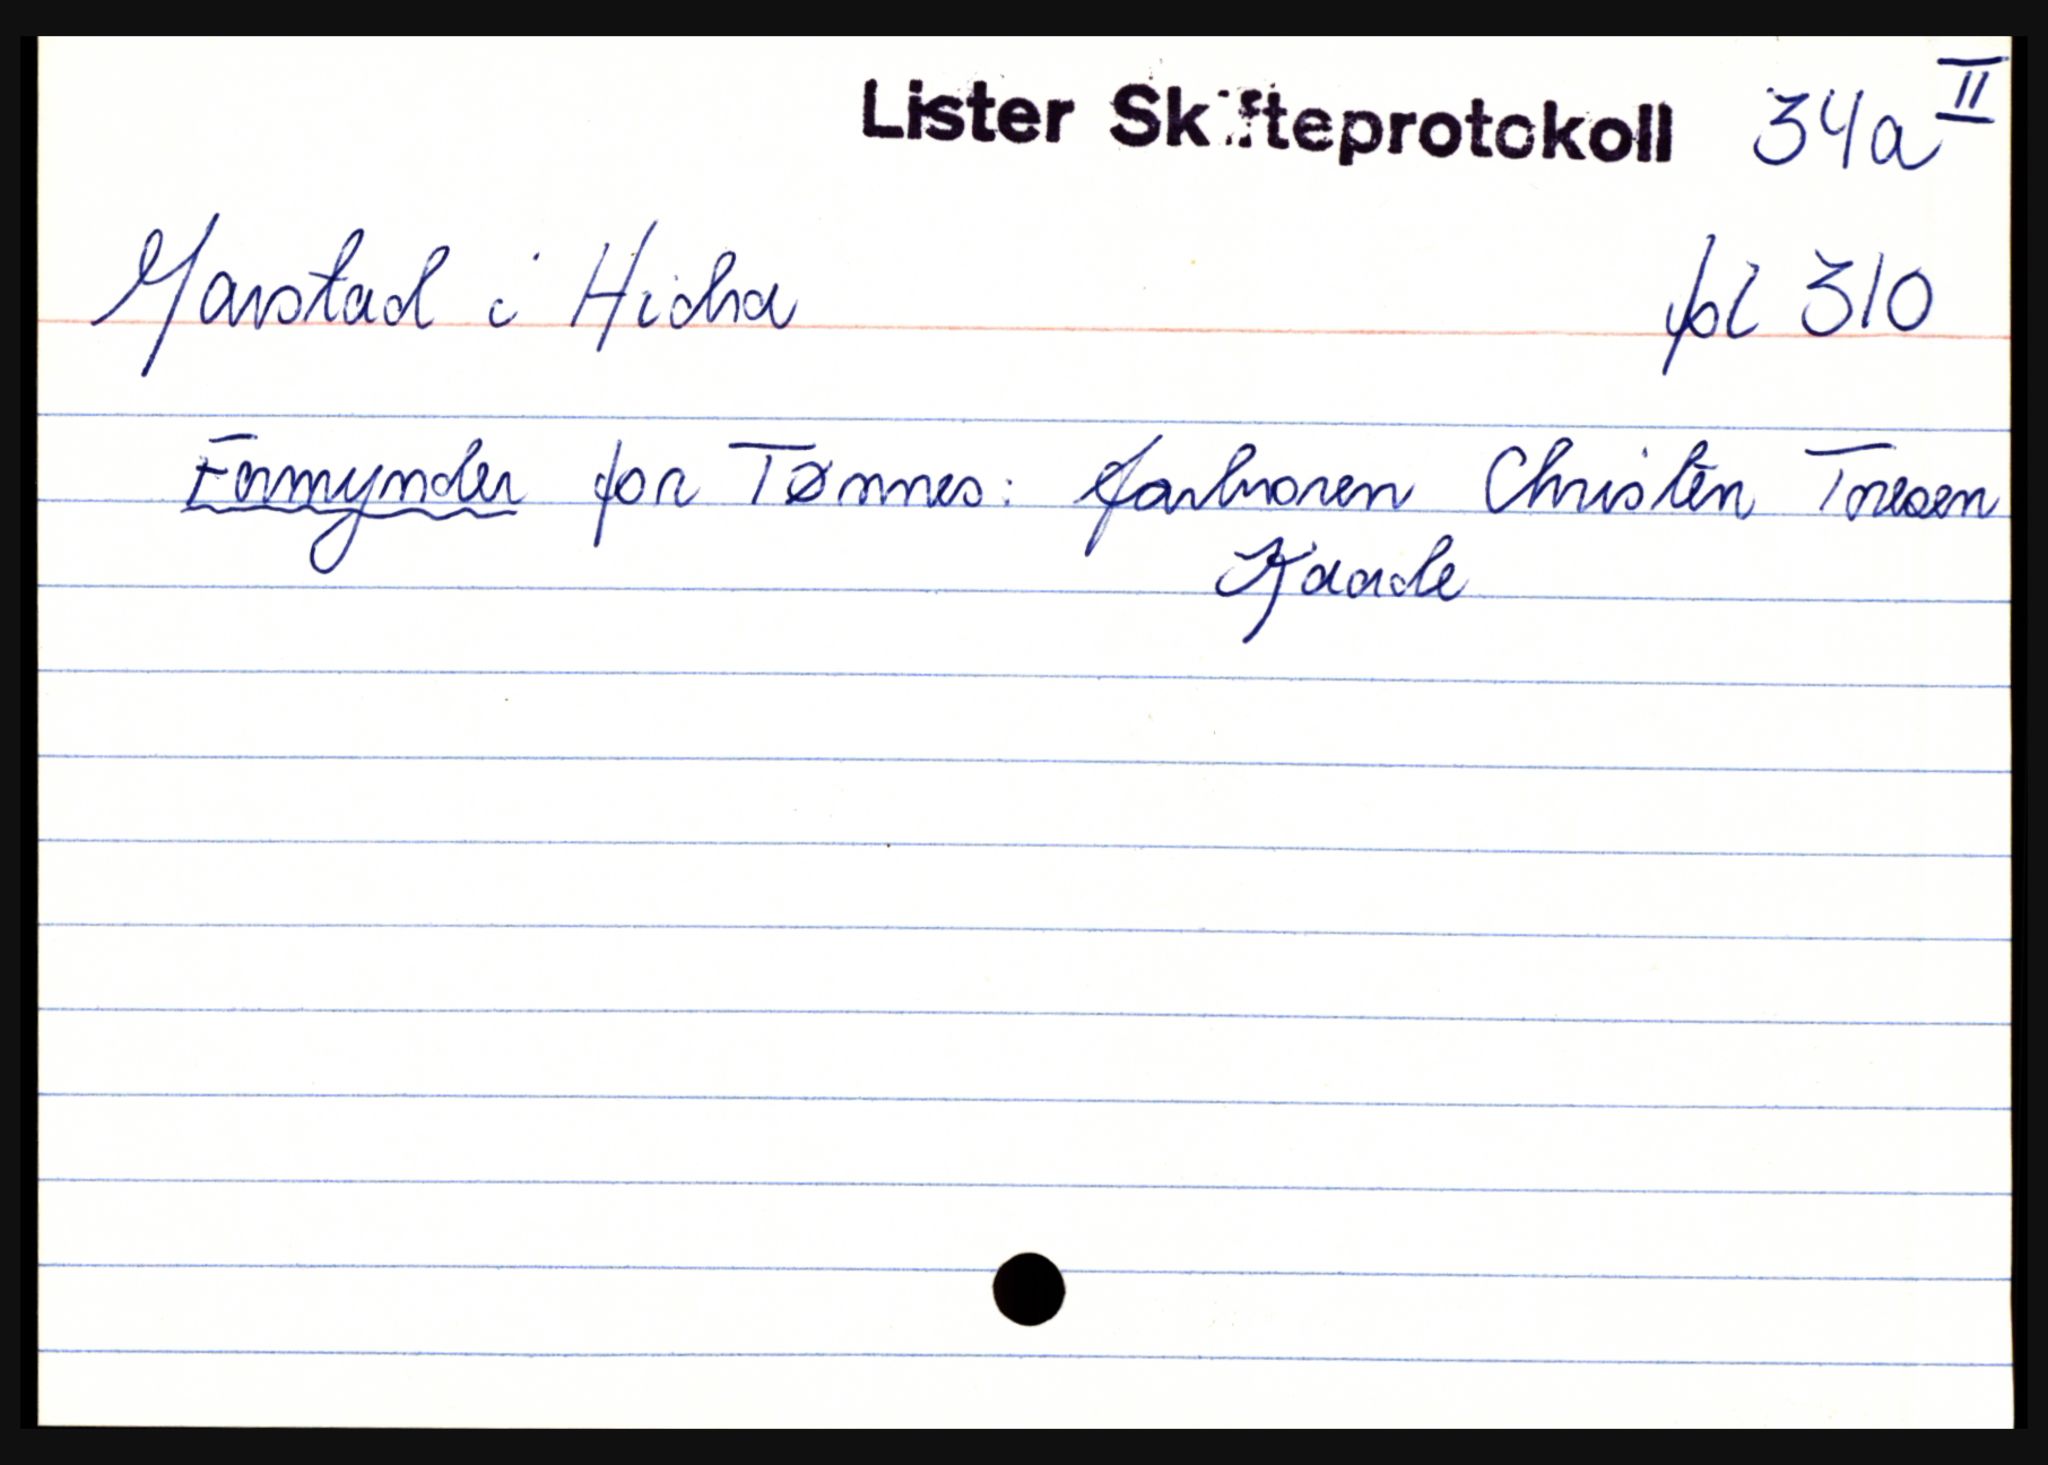 Lister Skifteprotokoll 34a II
Marstad i Hidra fol 310
Formynder for Tønnes: farbroren Christen Toresen
Kaade